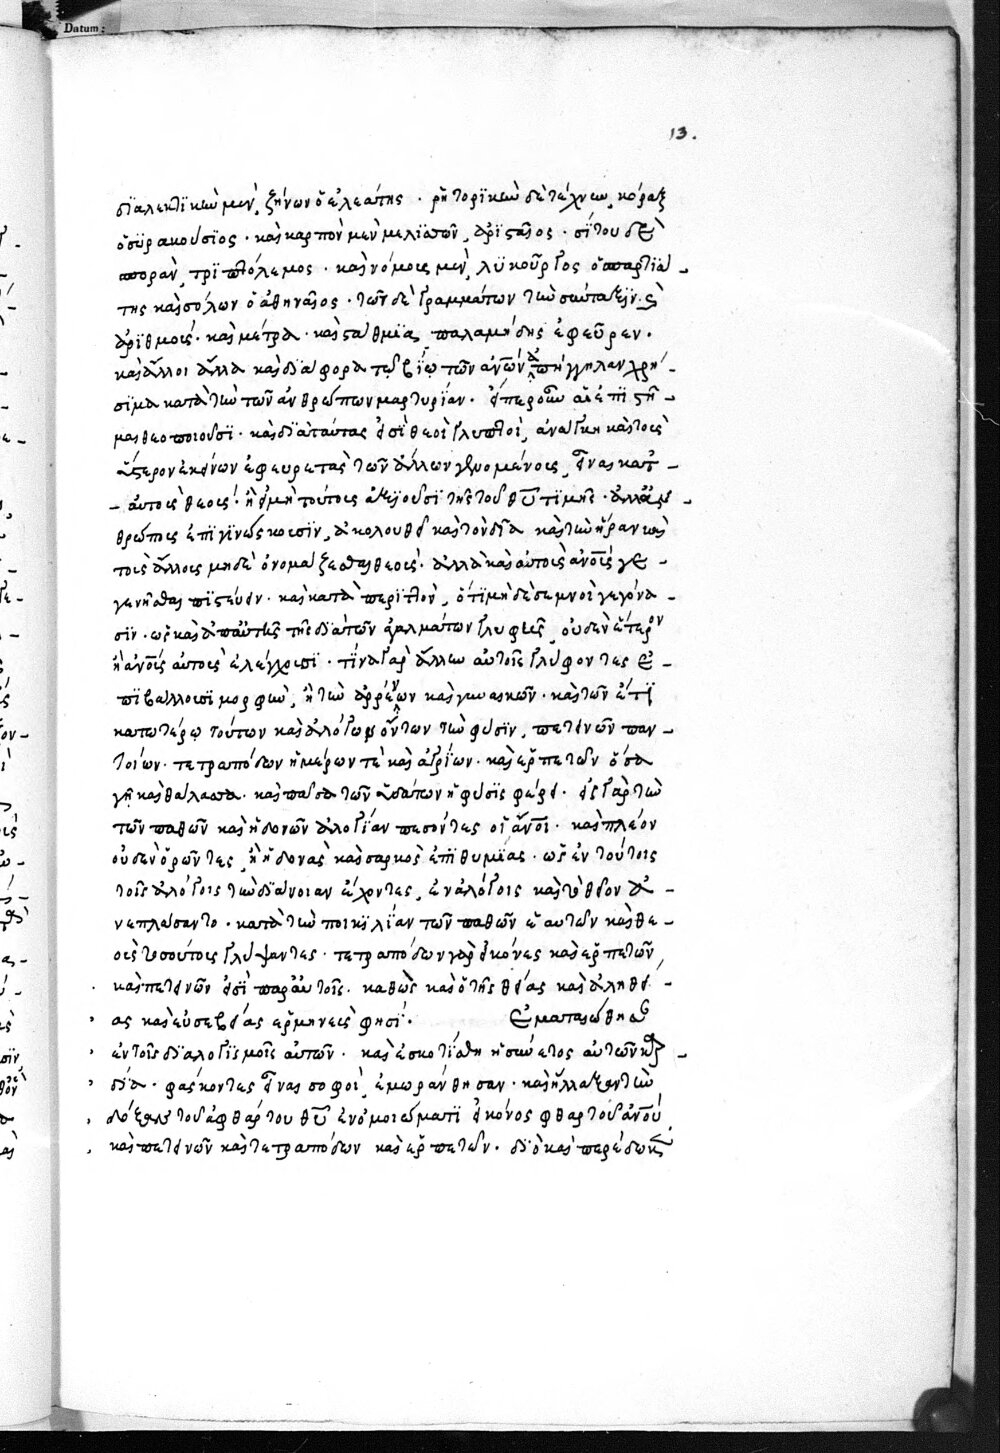 Datum:
13.
διαλεκτικὴν μὲν, ζήνων ὁ ἐλεάτης · ῥητορικὴν δὲ τέχνην, κόραξ
ὁ συρακούσιος · καὶ καρπὸν μὲν μελισσῶν, ἀρισταῖος · σίτου δὲ
σποράν, τριπτόλεμος · καὶ νόμοις μὲν, λυκοῦργος ὁ σπαρτιά-
της καὶ σόλων ὁ ἀθηναῖος · τῶν δὲ γραμμάτων τὴν σύνταξιν καὶ
ἀριθμοὺς · καὶ μέτρα · καὶ σταθμία, παλαμήδης ἐφεῦρεν ·
καὶ ἄλλοι ἄλλα καὶ διάφορα τῷ βίῳ τῶν ἀνῶν ἀπήγγειλαν χρή-
σιμα κατὰ τὴν τῶν ἀνθρώπων μαρτυρίαν · εἴπερ οὖν αἱ ἐπιστῆ-
μαι θεοποιοῦσι · καὶ διὰ ταύτας εἰσὶ θεοὶ γλυπτοὶ, ἀνάγκη καὶ τοὺς
ὕστερον ἐκείνων ἐφευρετὰς τῶν ἄλλων γενομένους, εἶναι κατ᾽
- αὐτοὺς θεούς · ἢ εἰ μὴ τούτους ἀξιοῦσι τῆς τοῦ θῦ τιμῆς · ἀλλ᾽ ἀν
θρώπους ἐπιγινώσκουσιν, ἀκολουθεῖ καὶ τὸν δία καὶ τὴν ἥραν καὶ
τοὺς ἄλλους μηδὲ ὀνομάζεσθαι θεούς · ἀλλὰ καὶ αὐτοὺς ἀνους γε-
γενῆσθαι πιστεύειν · καὶ κατὰ περιττὸν, ὅτι μηδὲ σεμνοὶ γεγόνα-
σιν · ὡς καὶ ἀπ᾽ αὐτῆς τῆς διὰ τῶν ἀγαλμάτων γλυφῆς, οὐδὲν ἕτερον
ἢ ἀνους αὐτοὺς ἐλέγχουσι · τίνα γὰρ ἄλλην αὐτοῖς γλύφοντες ἐ-
πιβάλλουσι μορφὴν, ἢ τὴν ἀρρένων καὶ γυναικῶν · καὶ τῶν ἔτι
κατωτέρω τούτων καὶ ἀλόγων ὄντων τὴν φύσιν, πετεινῶν παν-
τοίων · τετραπόδων ἡμέρων τὲ καὶ ἀγρίων · καὶ ἑρπετῶν ὅσα
γῆ καὶ θάλασσα · καὶ πᾶσα τῶν ὑδάτων ἡ φύσις φέρει · εἰς γὰρ τὴν
τῶν παθῶν καὶ ἡδονῶν ἀλογίαν πεσόντες οἱ ἄνοι · καὶ πλέον
οὐδὲν ὁρῶντες, ἢ ἡδονὰς καὶ σαρκὸς ἐπιθυμίας · ὡς ἐν τούτοις
τοῖς ἀλόγοις τὴν διάνοιαν ἔχοντες, ἐν ἀλόγοις καὶ τὸ θεῖον ἀ-
νεπλάσαντο · κατὰ τὴν ποικιλίαν τῶν παθῶν ἑαυτῶν καὶ θε-
οὺς τοσούτους γλύψαντες · τετραπόδων γὰρ εἰκόνες καὶ ἑρπετῶν,
καὶ πετεινῶν εἰσὶ παρ᾽ αὐτοῖς · καθὼς καὶ ὁ τῆς θείας καὶ ἀληθεί-
ας καὶ εὐσεβείας ἑρμηνεὺς φησί · Ἐματαιώθησαν
ἐν τοῖς διαλογισμοῖς αὐτῶν · καὶ ἐσκοτίσθη ἡ ἀσύνετος αὐτῶν καρ-
δία · φάσκοντες εἶναι σοφοὶ, ἐμωράνθησαν · καὶ ἤλλαξαν τὴν
δόξαν τοῦ ἀφθάρτου θῦ ἐν ὁμοιώματι εἰκόνος φθαρτοῦ ἀνου
καὶ πετεινῶν καὶ τετραπόδων καὶ ἑρπετῶν · διὸ καὶ παρέδωκεν